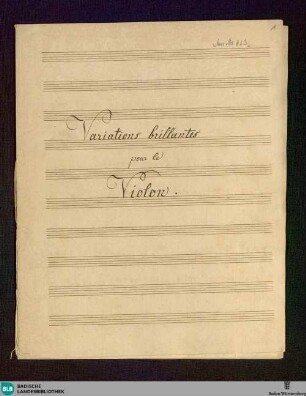 Variations brillantes
pour le
Violon.
BLB
BADISCHE
LANDESBIBLIOTHEK
Baden-Württemberg